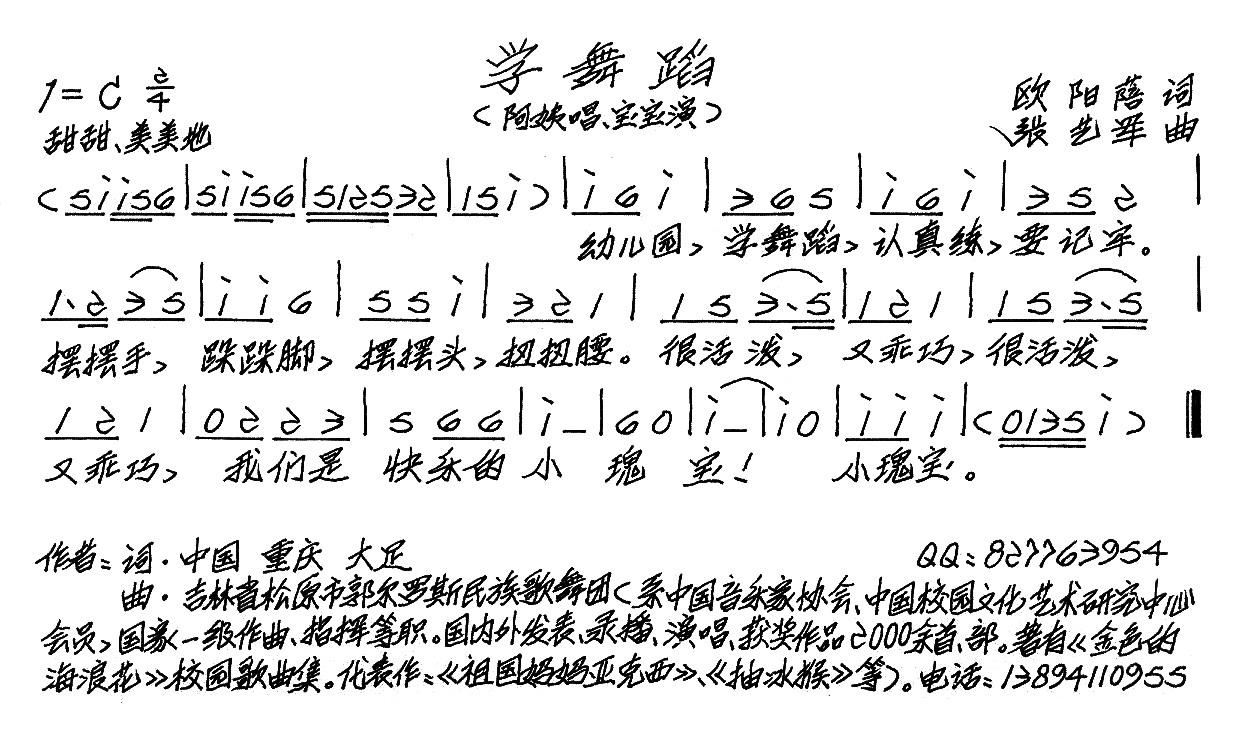 学舞蹈
1=C 2/4
(阿姨唱、宝宝演)
欧阳蓓 词
甜甜、美美地
张艺军 曲
(5i i56|5i i56|512532|15i)|i 6 i|3 6 5|i 6 i|3 5 2|
幼儿园,学舞蹈,认真练,要记牢。
1、2 3 5|i i 6|5 5 i|3 2 1|1 5 3、5|1 2 1|1 5 3、5|
摆摆手,跺跺脚,摆摆头,扭扭腰。很活泼,又乖巧,很活泼,
1 2 1|0 2 2 3|5 6 6|i –|6 0|i –|i 0|i i i|(0135 i)‖
又乖巧,我们是 快乐的小 瑰 宝! 小瑰宝。
作者:词·中国 重庆 大足 QQ:827763954
曲·吉林省松原市郭尔罗斯民族歌舞团(系中国音乐家协会、中国校园文化艺术研究中心
会员,国家一级作曲、指挥等职。国内外发表、录播、演唱、获奖作品2000余首、部。著有《金色的
海浪花》校园歌曲集。代表作:《祖国妈妈亚克西》、《抽冰猴》等)。电话:13894110955